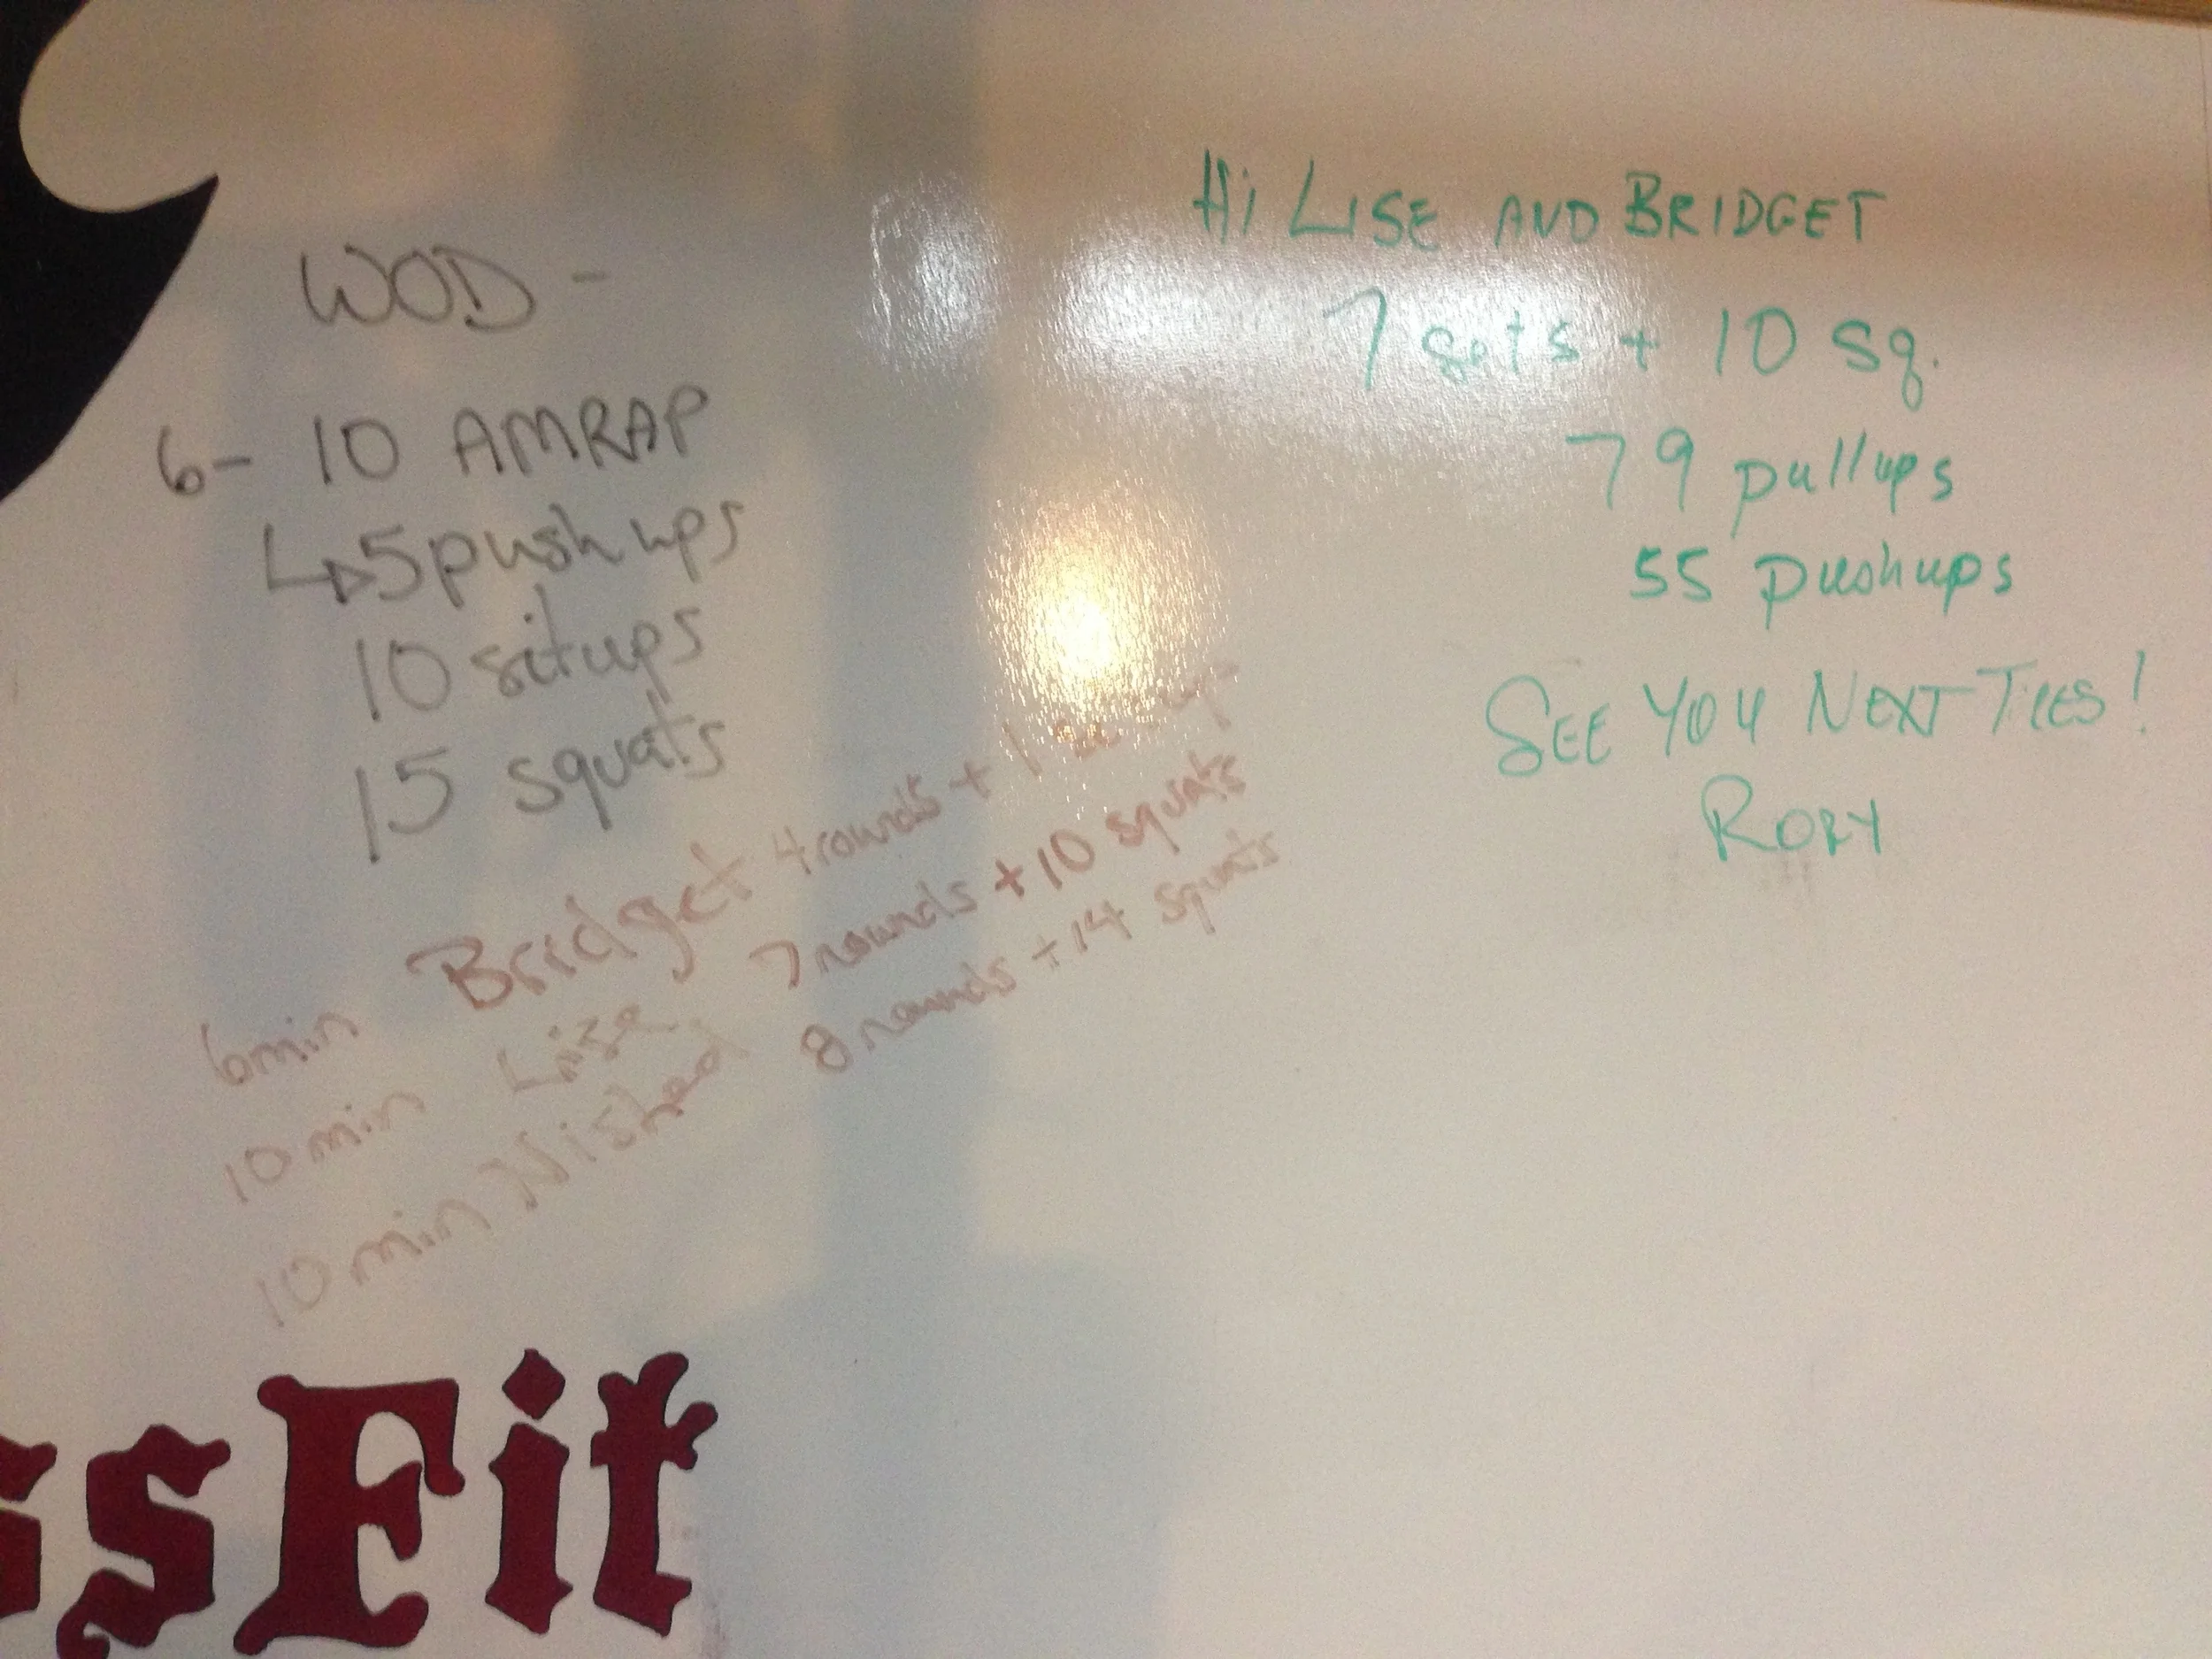 WOD -
6- 10 AMRAP
↳5 push ups
10 situps
15 squats
6min Bridget 4 rounds + 1
10 min Lise 7 rounds + 10 squats
10 min Nishad 8 rounds + 14 squats
Hi LISE AND BRIDGET
7 sets + 10 sq.
79 pullups
55 pushups
SEE YOU NEXT TUES!
RORY
ssFit